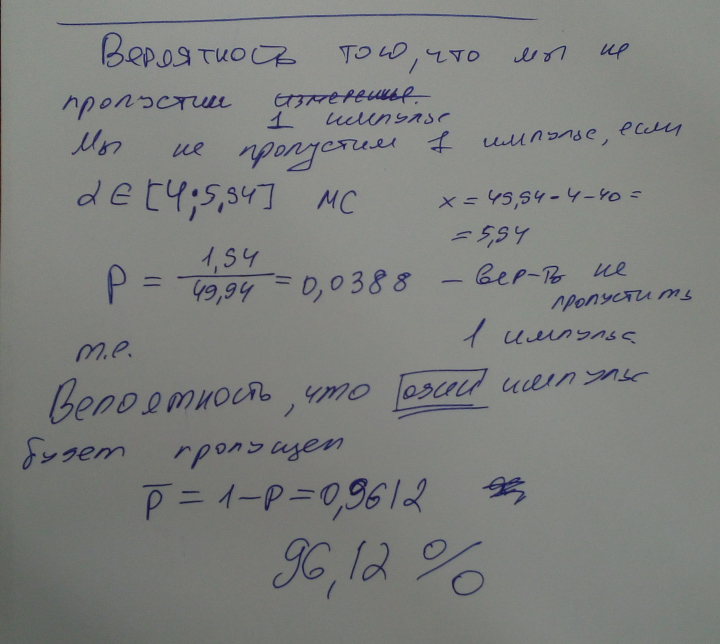 Вероятность того, что мы не
пропустим измерение.
1 импульс
Мы не пропустим 1 импульс, если
α ∈ [4; 5,94] мс
x = 49,94 - 4 - 40 =
= 5,94
P = 1,94 / 49,94 = 0,0388 — вер-ть не
пропустить
1 импульс
т.е.
Вероятность, что один импульс
будет пропущен
P̅ = 1 - P = 0,9612
96,12 %